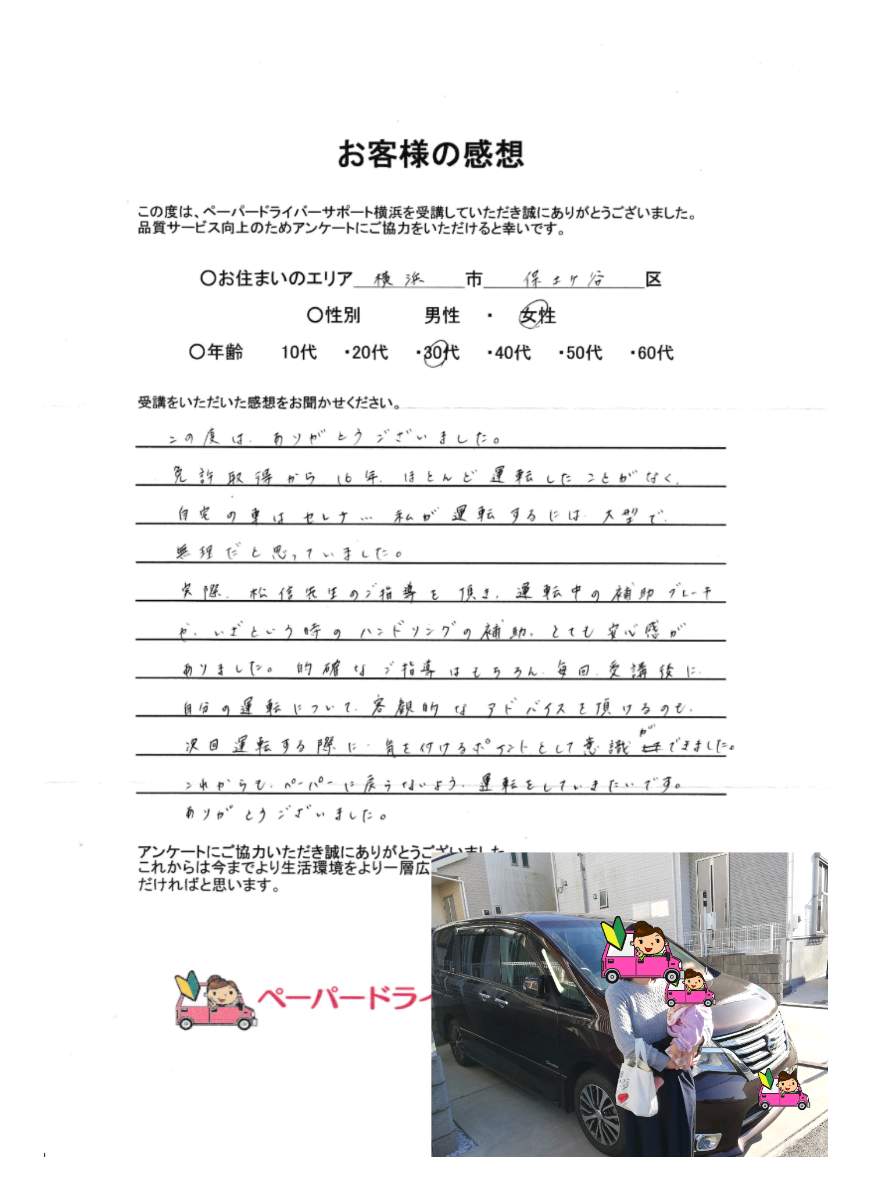 お客様の感想
この度は、ペーパードライバーサポート横浜を受講していただき誠にありがとうございました。
品質サービス向上のためアンケートにご協力をいただけると幸いです。
○お住まいのエリア 横浜 市 保土ケ谷 区
○性別 男性 ・ 女性
○年齢 10代 ・20代 ・30代 ・40代 ・50代 ・60代
受講をいただいた感想をお聞かせください。
この度は、ありがとうございました。
免許取得から16年、ほとんど運転したことがなく、
自宅の車はセレナ… 私が運転するには大型で、
無理だと思っていました。
実際、松信先生のご指導を頂き、運転中の補助ブレーキ
や、いざという時のハンドリングの補助、とても安心感が
ありました。的確なご指導はもちろん、毎回、受講後に、
自分の運転について、客観的なアドバイスを頂けるのも、
次回運転する際に、気を付けるポイントとして意識ができました。
これからも、ペーパーに戻らないよう、運転をしていきたいです。
ありがとうございました。
アンケートにご協力いただき誠にありがとうございました
これからは今までより生活環境をより一層広
だければと思います。
ペーパードライ